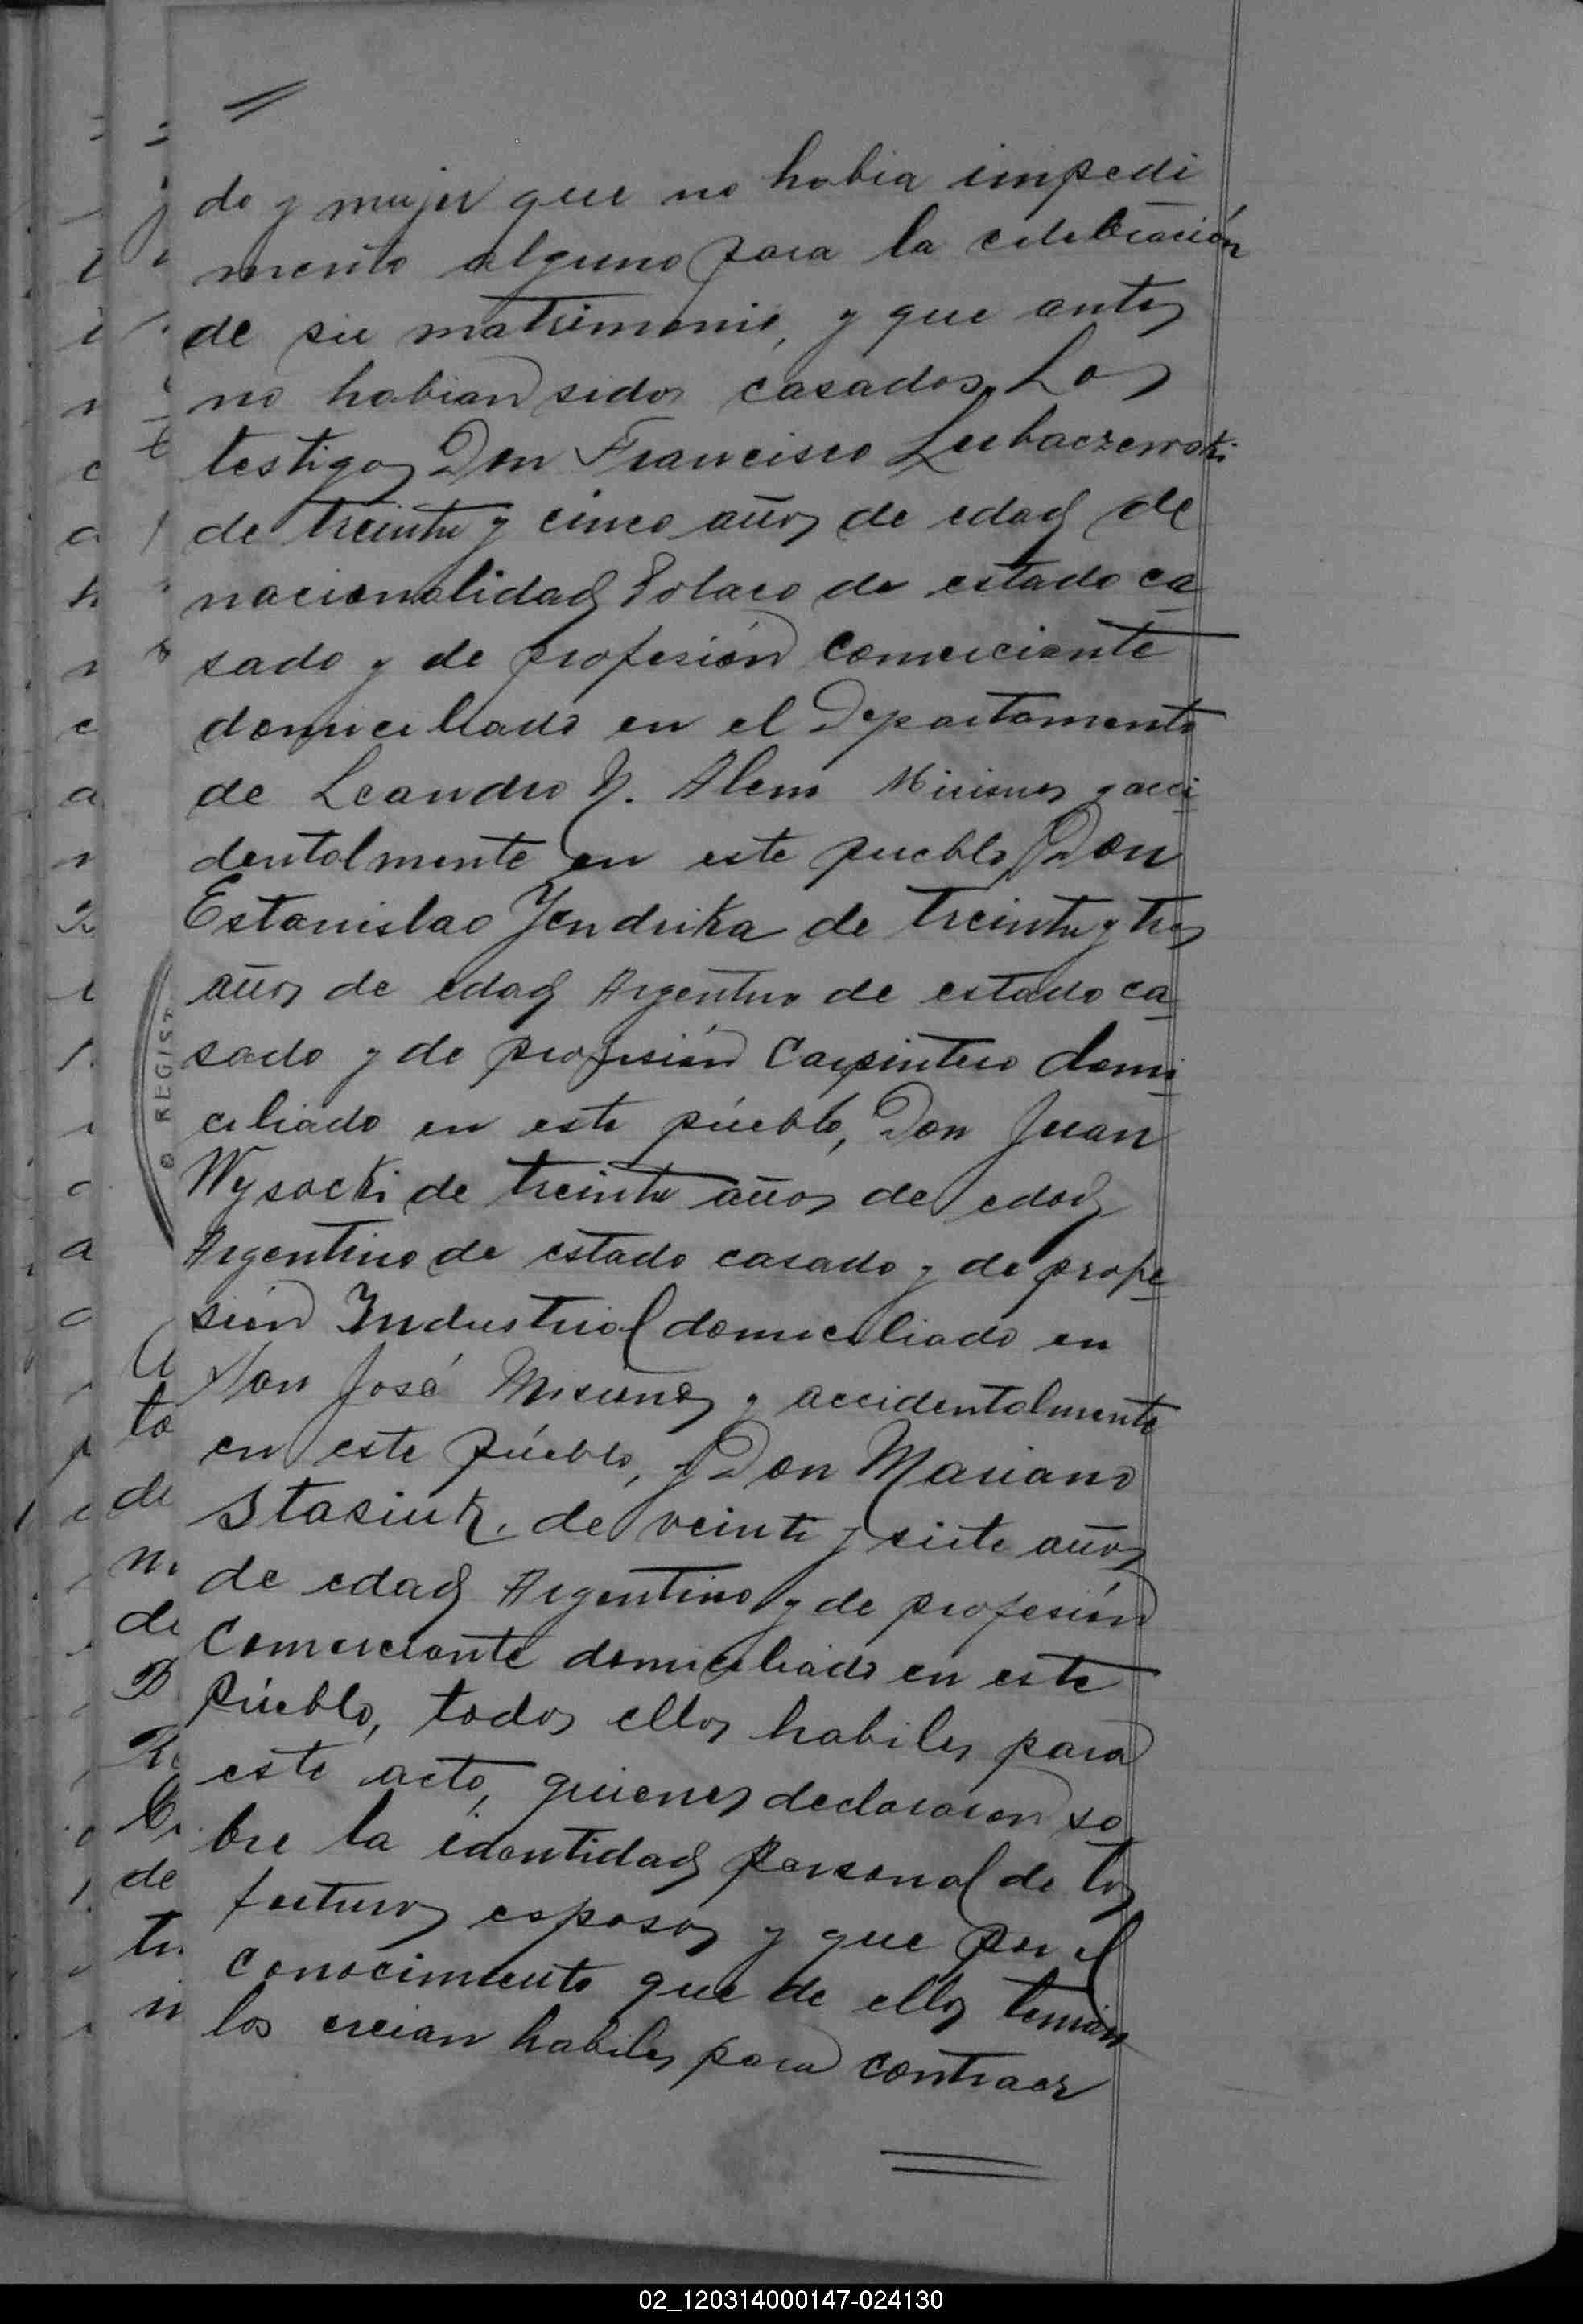 do y mujer que no habia impedi
mento alguno para la celebración
de su matrimonio, y que antes
no habian sidos casados. Los
testigos Don Francisco Lubaczewski
de treinta y cinco años de edad de
nacionalidad Polaco de estado ca
sado y de profesión comerciante
domiciliado en el Departamento
de Leandro N. Alem Misiones y acci
dentalmente en este pueblo, Don
Estanislao Jendrika de treinta y tres
años de edad Argentino de estado ca
sado y de profesión Carpintero domi
ciliado en este pueblo, Don Juan
Wysocki de treinta años de edad
Argentino de estado casado y de profe
sión Industrial domiciliado en
San José Misiones y accidentalmente
en este pueblo, y Don Mariano
Stasiuk, de veinte y siete años
de edad Argentino y de profesión
Comerciante domiciliado en este
pueblo, todos ellos habiles para
este acto, quienes declararon so
bre la identidad personal de los
futuros esposos y que por el
conocimiento que de ellos tenian
los creian habiles para contraer
REGIST
02_120314000147-024130